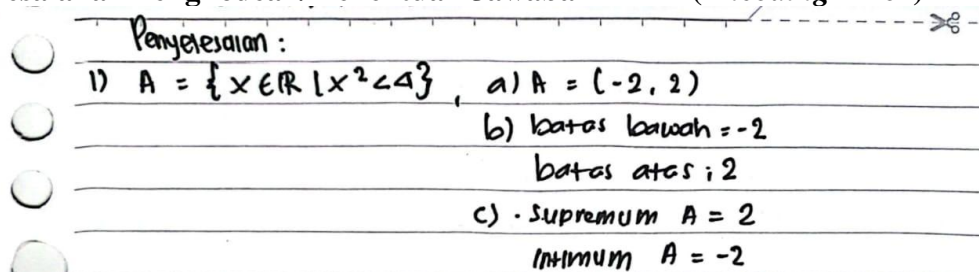 Penyelesaian :
1) A = {x ∈ ℝ | x² < 4}, a) A = (-2, 2)
b) batas bawah = -2
batas atas ; 2
c) · Supremum A = 2
Intimum A = -2